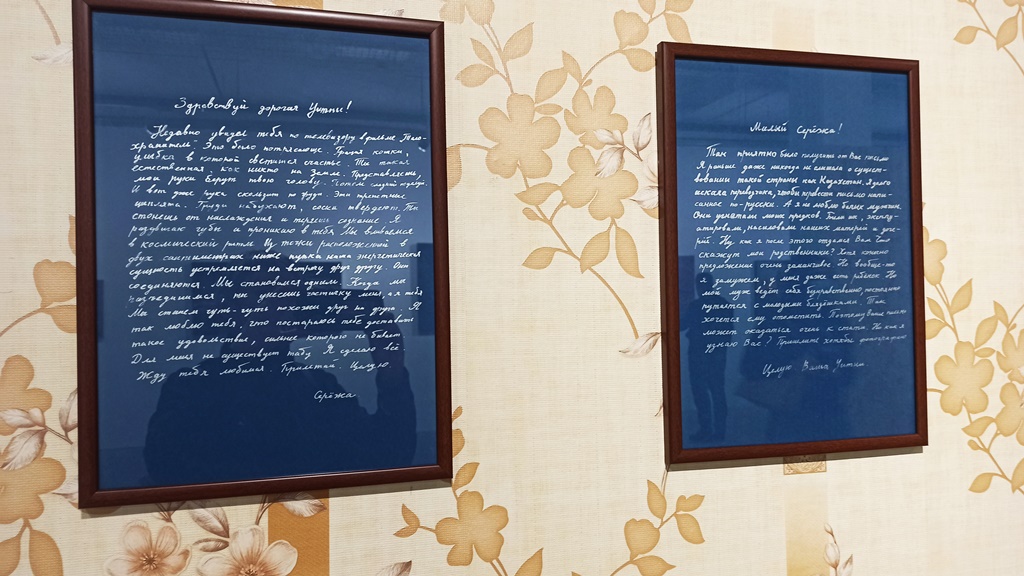 Здравствуй дорогая Уитни!
Недавно увидел тебя по телевизору в фильме Тело-
хранитель. Это было потрясающе. Грация кошки,
улыбка в которой светится счастье. Ты такая
естественная, как никто на Земле. Представляешь,
мои руки берут твою голову. Потом поцелуй.
И вот уже рука скользит по груди. Эти прелестные
цыплята. Груди набухают, соски твердеют. Ты
стонешь от наслаждения и теряешь сознание. Я
раздвигаю губы и проникаю в тебя. Мы сливаемся
в космический ритме. Из точки расположеной в
двух сантиметрах ниже пупка наша энергетическая
сущность устремляется на встречу друг другу. Они
соединяются. Мы становимся одним. Когда мы
разъединимся, ты унесешь частичку меня, а я тебя
Мы станем чуть-чуть похожи друг на друга. Я
так люблю тебя, что постараюсь тебе доставить
такое удовольствие, сильнее которого не бывает.
Для меня не существует табу. Я сделаю всё.
Жду тебя любимая. Прилетай. Целую.
Серёжа
Милый Серёжа!
Так приятно было получить от Вас письмо
Я раньше даже никогда не слышала о сущест-
вовании такой страны как Казахстан. Я долго
искала переводчика, чтобы прочесть письмо напи-
санное по-русски. А я не люблю белых мужчин.
Они угнетали моих предков. Били их, эксплу-
атировали, насиловали наших матерей и доче-
рей. Ну как я после этого отдамся Вам. Что
скажут мои родственники? Хотя конечно
предложение очень заманчивое. Но вообще-то
я замужем, у меня даже есть ребёнок. Но
мой муж ведёт себя безнравственно, постоянно
путается с молодыми блядюшками. Так
хочется ему отомстить. Поэтому Ваше письмо
может оказаться очень к стати. Но как я
узнаю Вас? Пришлите хотябы фотографию
Целую Ваша Уитни